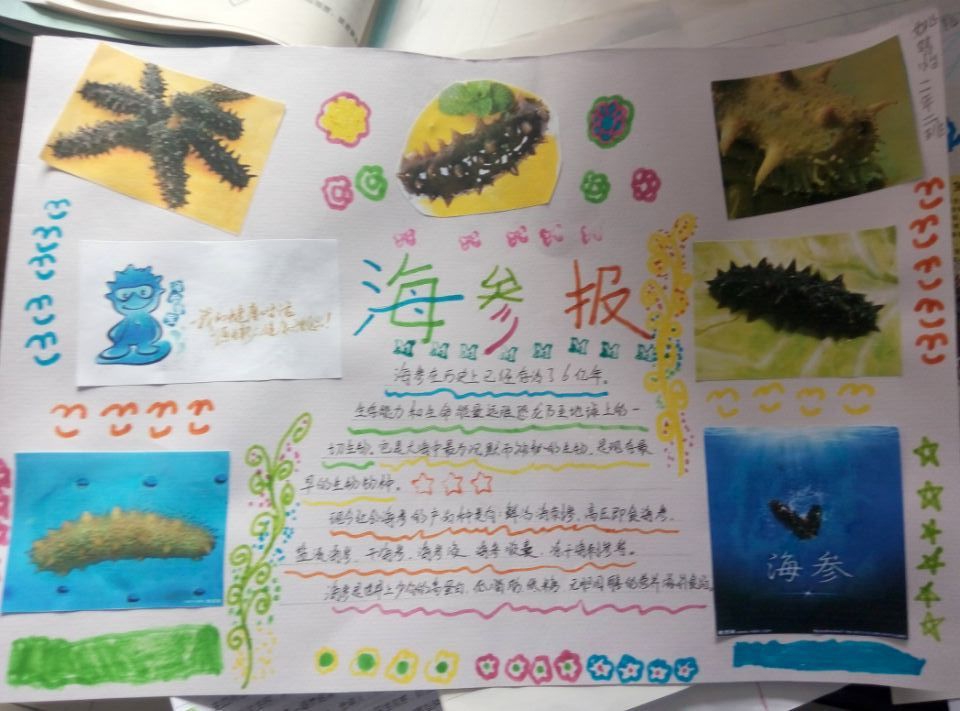 二年三班
海参报
海参在历史上已经存活了6亿年。
生存能力和生命能量远胜恐龙乃至地球上的一
切生物。它是大海中最为沉默而神秘的生物，是现存最
早的生物物种。
现今社会海参的产品种类有：鲜活海刺参、高压即食海参、
盐渍海参、干海参、海参液、海参胶囊、冻干海刺参等。
海参是世界上少有的高蛋白、低脂肪、低糖、无胆固醇的营养滋补食品
海参